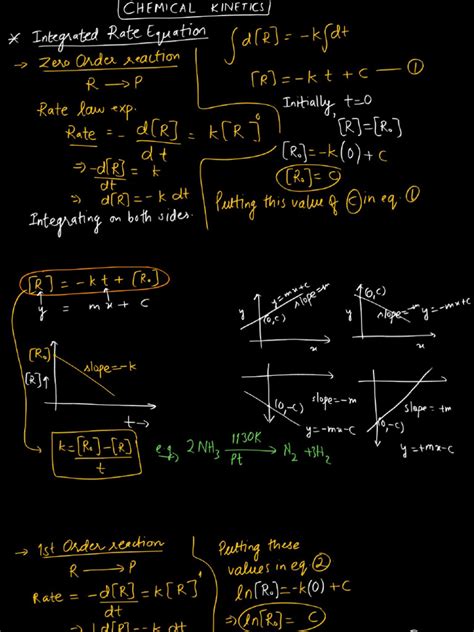 CHEMICAL KINETICS
* Integrated Rate Equation
→ Zero Order reaction
R ⟶ P
Rate law exp.
Rate = - d[R]/dt = k[R]⁰
⇒ -d[R]/dt = k
⇒ d[R] = -k dt
Integrating on both sides.
∫d[R] = -k∫dt
[R] = -kt + C —①
Initially, t=0
[R]=[R₀]
[R₀] = -k(0) + C
[R₀] = C
Putting this value of C in eq. ①
[R] = -kt + [R₀]
y = mx + c
[R₀]
[R]↑
slope=-k
t→
k = [R₀]-[R]/t
y
y=mx+c
slope=m
(0,c)
x
y
(0,c)
slope=-m
y=-mx+c
x
(0,-c)
slope=-m
y=-mx-c
(0,-c)
slope=+m
y=+mx-c
e.g. 2NH₃ 1130K/Pt → N₂ + 3H₂
→ 1st Order reaction
R ⟶ P
Rate = -d[R]/dt = k[R]¹
⇒ -d[R] = k dt
Putting these
values in eq ②
ln[R₀] = -k(0) + C
⇒ ln[R₀] = C